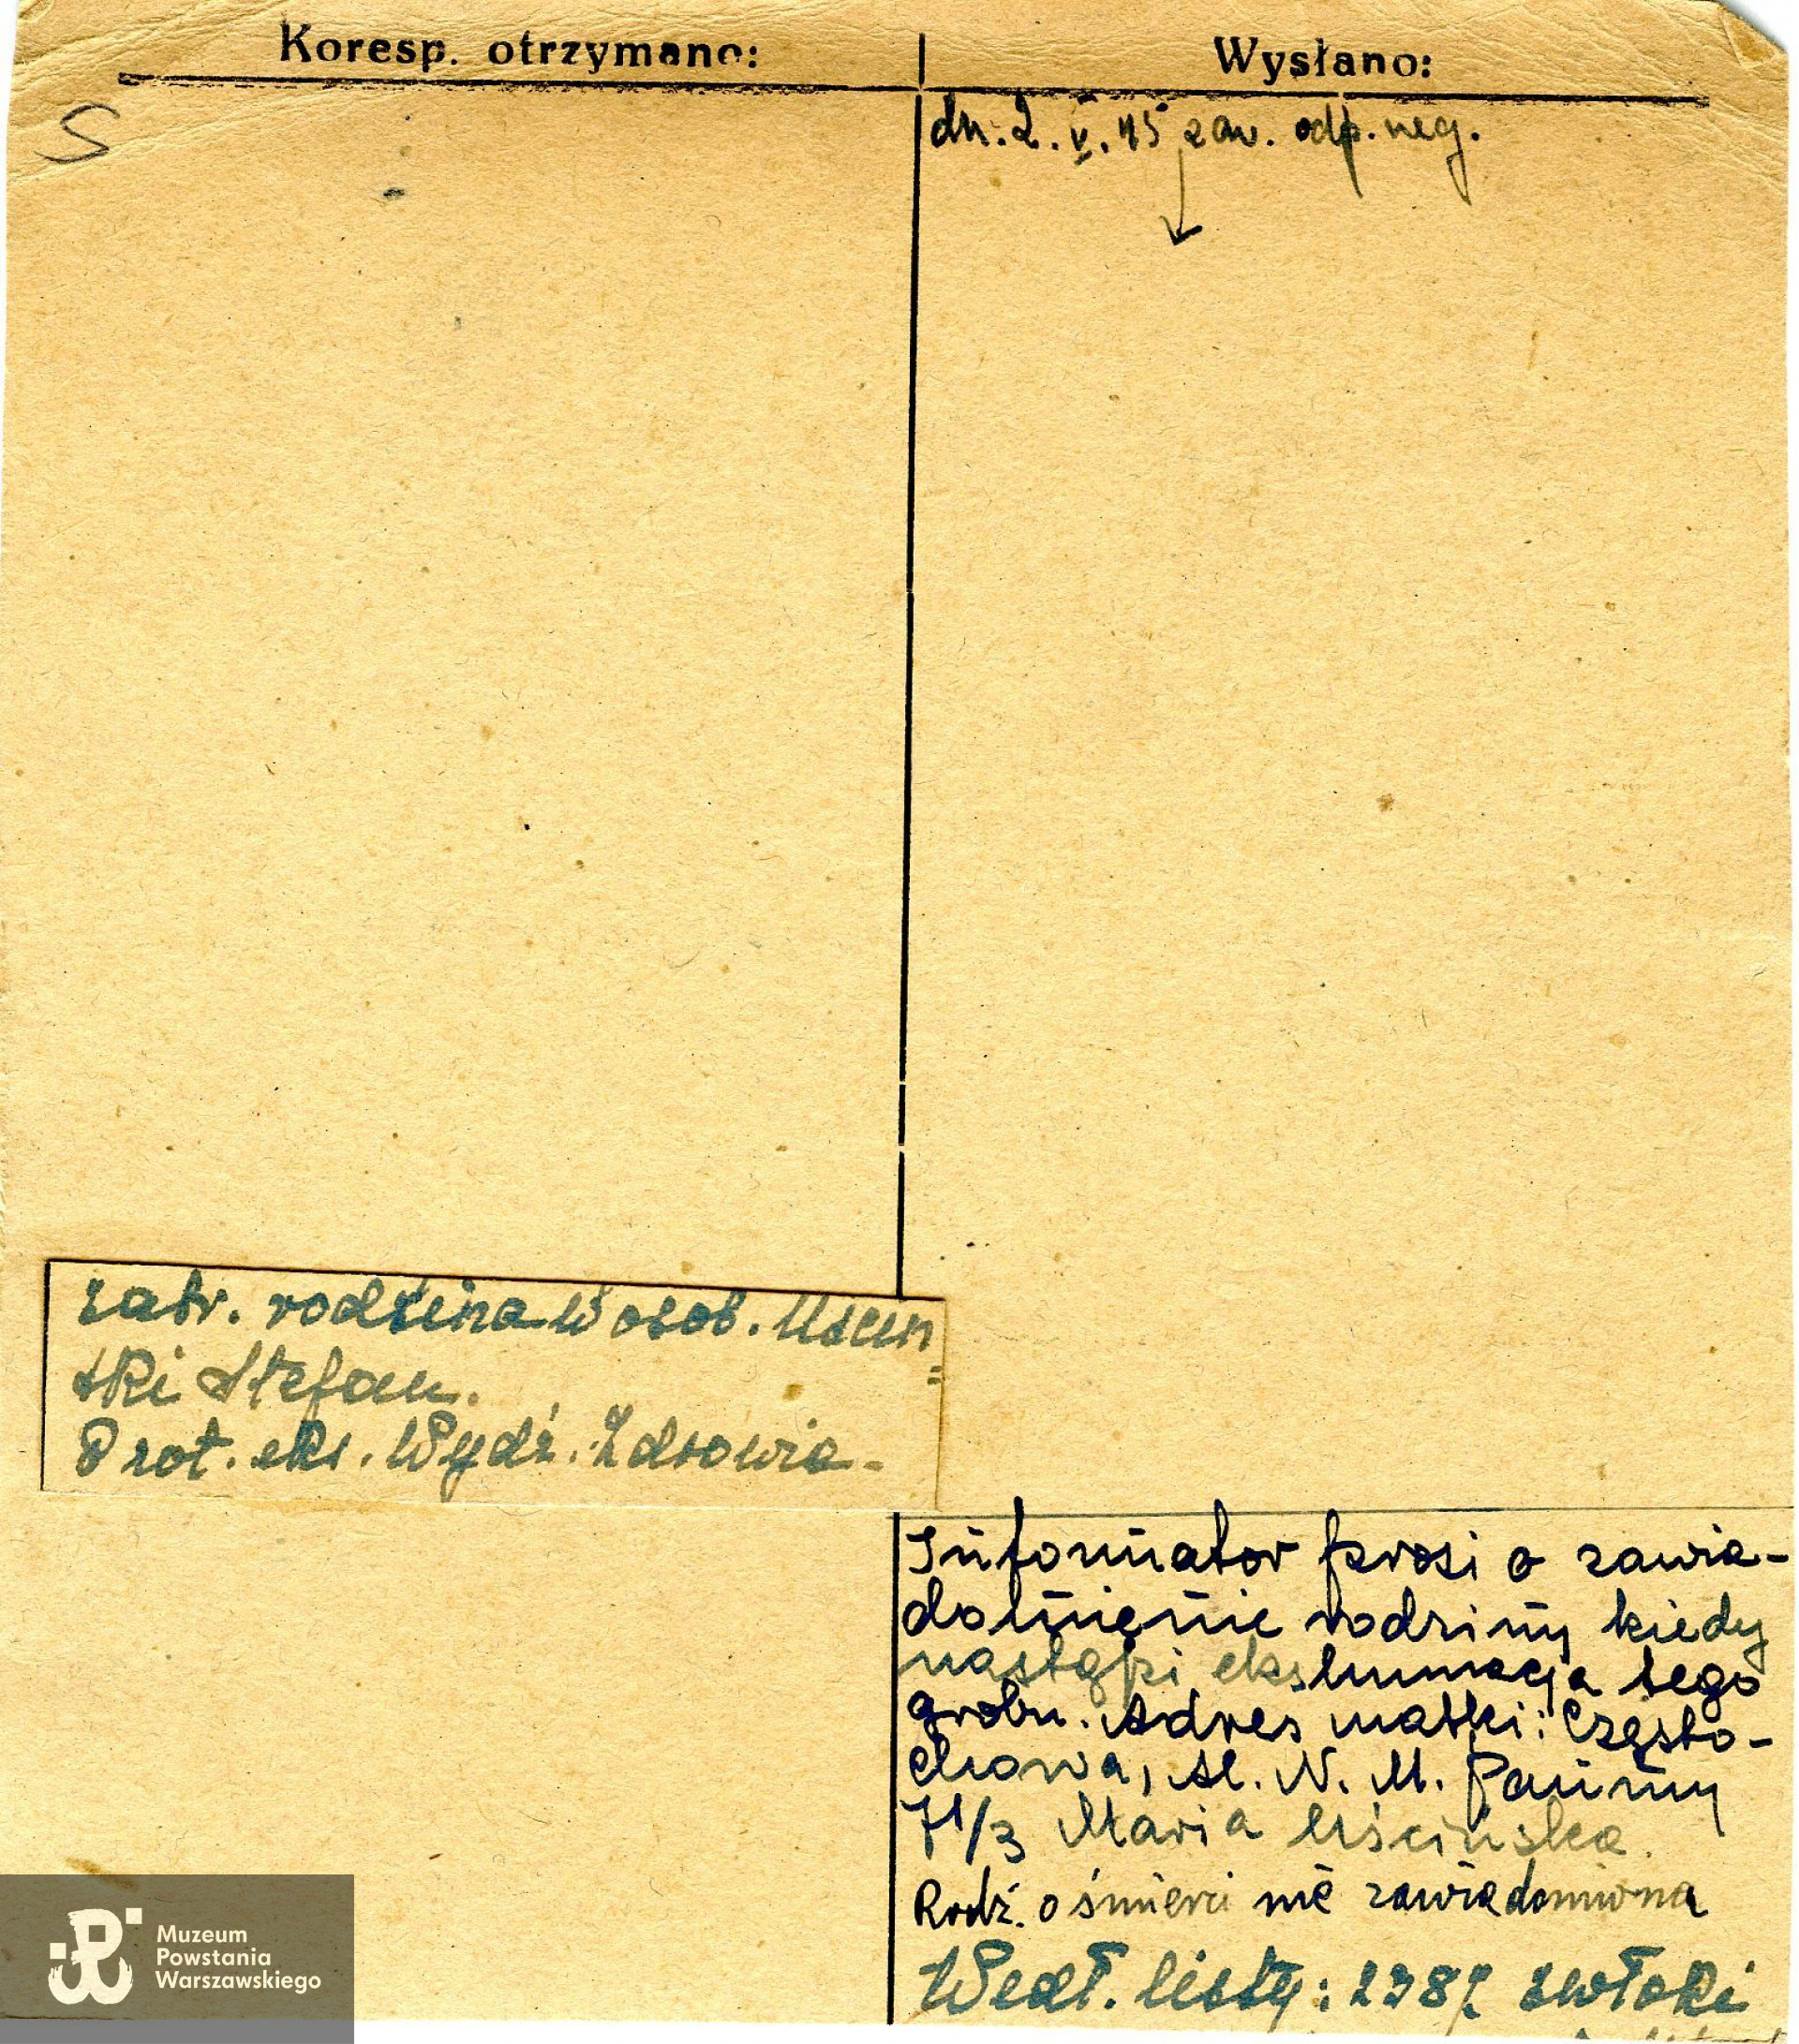 Koresp. otrzymano:
Wysłano:
S
dn. 2. V. 45 zaw. odp. neg.
Zabr. rodzina w osob. Uścin
=
ski Stefan.
Prot. eks. Wydz. Zdrowia -
Informator prosi o zawia-
domienie rodziny kiedy
nastąpi ekshumacja tego
grobu. Adres matki: Często-
chowa, Al. N. M. Panny
71/3 Maria Uścińska.
Rodz. o śmierci nie zawiadomiona
Wedł. listy: 2387 zwłoki
Muzeum
Powstania
Warszawskiego